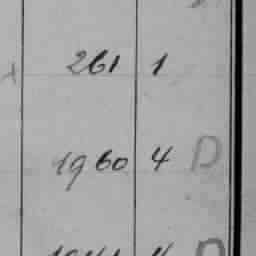 261 1
1960 4 D